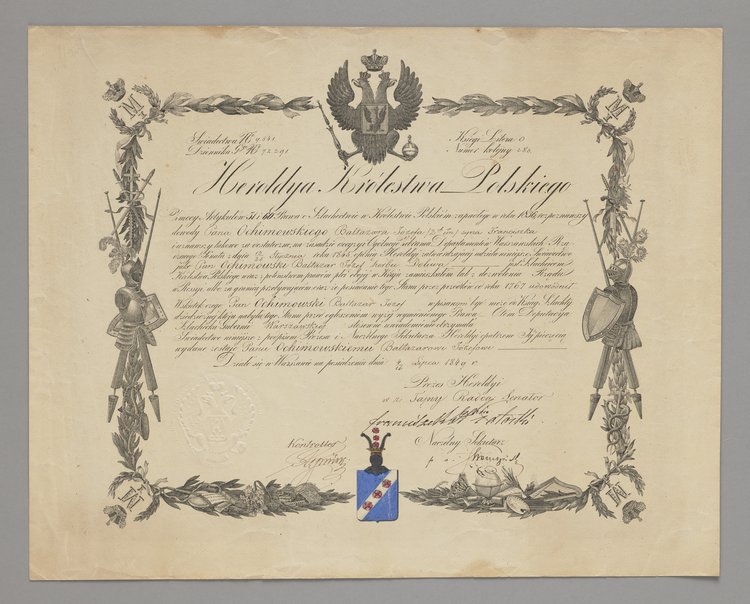 Świadectwo No 9841
Dziennika Gł. No 7229
Księgi Litera O
Numer kolejny 286
Heroldya Królestwa Polskiego
Z mocy Artykułów 51 i 60 Prawa o Szlachectwie w Królestwie Polskiem zapadłego w roku 1836 rozpoznawszy
dowody Pana Ochimowskiego Baltazara Józefa (2ch im) syna Franciszka
i uznawszy takowe za dostateczne, na zasadzie decyzyi Ogólnego zebrania Departamentów Warszawskich Rzą-
dzącego Senatu z dnia Stycznia roku 1845 opinię Heroldyi zatwierdzającej wydała niniejsze Świadectwo
jako Pan Ochimowski Baltazar Józef herbu Dołiwa jest Szlachcicem
Królestwa Polskiego wraz z potomstwem prawem płci obojej w Kraju zamieszkałem lub z dozwolenia Rządu
w Rosyi albo za granicą przebywającem oraz że posiadanie tego Stanu przez przodków w roku 1767 udowodnił
W skutek czego Pan Ochimowski Baltazar Józef wpisanym być może do Księgi Szlachty
dziedzicznej która nabyła tego Stanu przed ogłoszeniem wyżej wymienionego Prawa – O tem Deputacya
Szlachecka Gubernii Warszawskiej stosowne zawiadomienie otrzymała
Świadectwo niniejsze z podpisem Prezesa i Naczelnego Sekretarza Heroldyi opatrzone Jej pieczęcią
wydane zostaje Panu Ochimowskiemu Baltazarowi Józefowi
Działo się w Warszawie na posiedzeniu dnia Lipca 1849 r
Prezes Heroldyi
w z Tajny Radca Senator
Kontroller
Naczelny Sekretarz